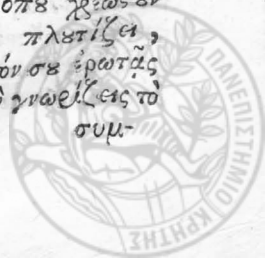 πλουτίζει,
όν σου ἐρωτᾷς
γνωρίζεις τὸ
συμ-
ΠΑΝΕΠΙΣΤΗΜΙΟ ΚΡΗΤΗΣ